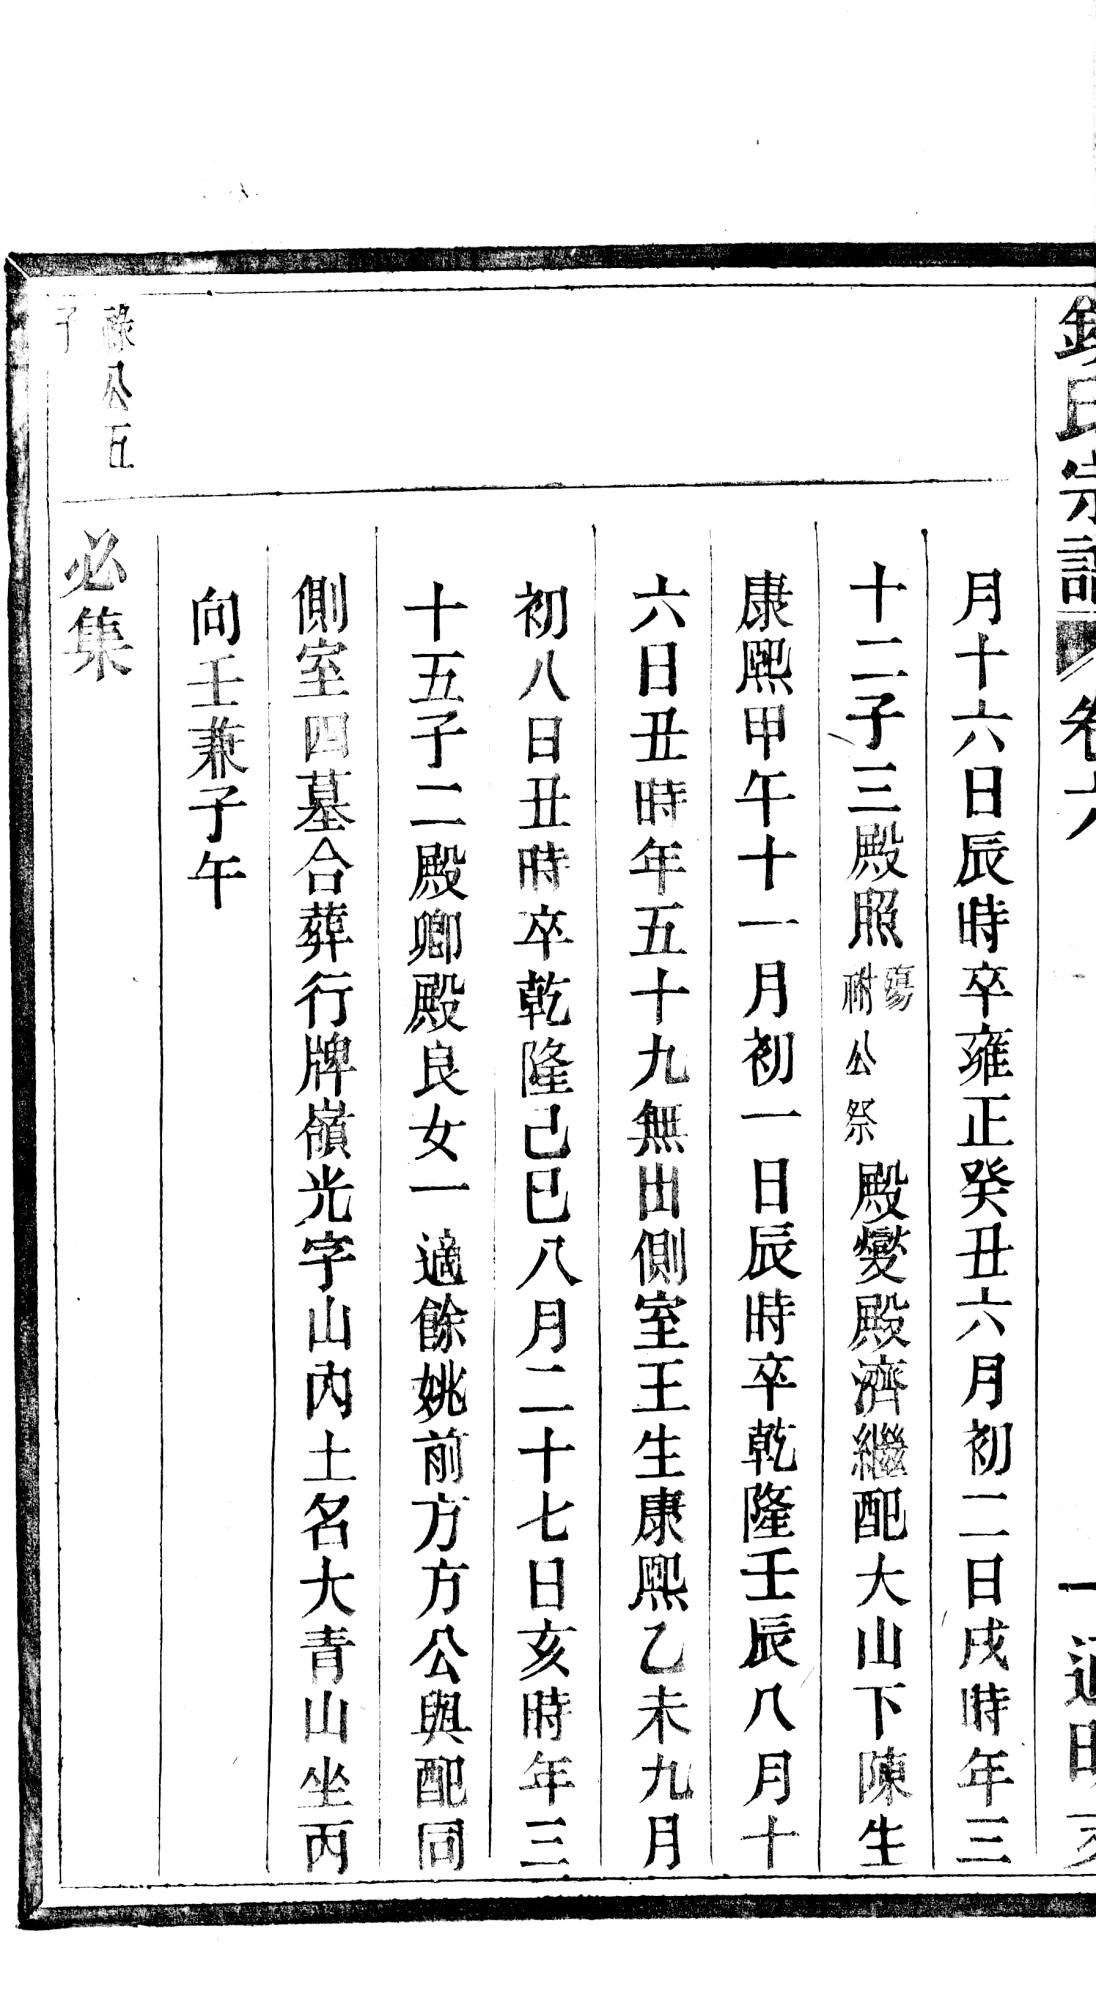 氏宗譜 卷六
月十六日辰時卒雍正癸丑六月初二日戌時年三
十二子三殿照殤祔公祭殿燮殿濟繼配大山下陳生
康熙甲午十一月初一日辰時卒乾隆壬辰八月十
六日丑時年五十九無出側室王生康熙乙未九月
初八日丑時卒乾隆己巳八月二十七日亥時年三
十五子二殿卿殿良女一適餘姚前方方公與配同
側室四墓合葬行牌嶺光字山內土名大青山坐丙
向壬兼子午
祿公五
子
必集